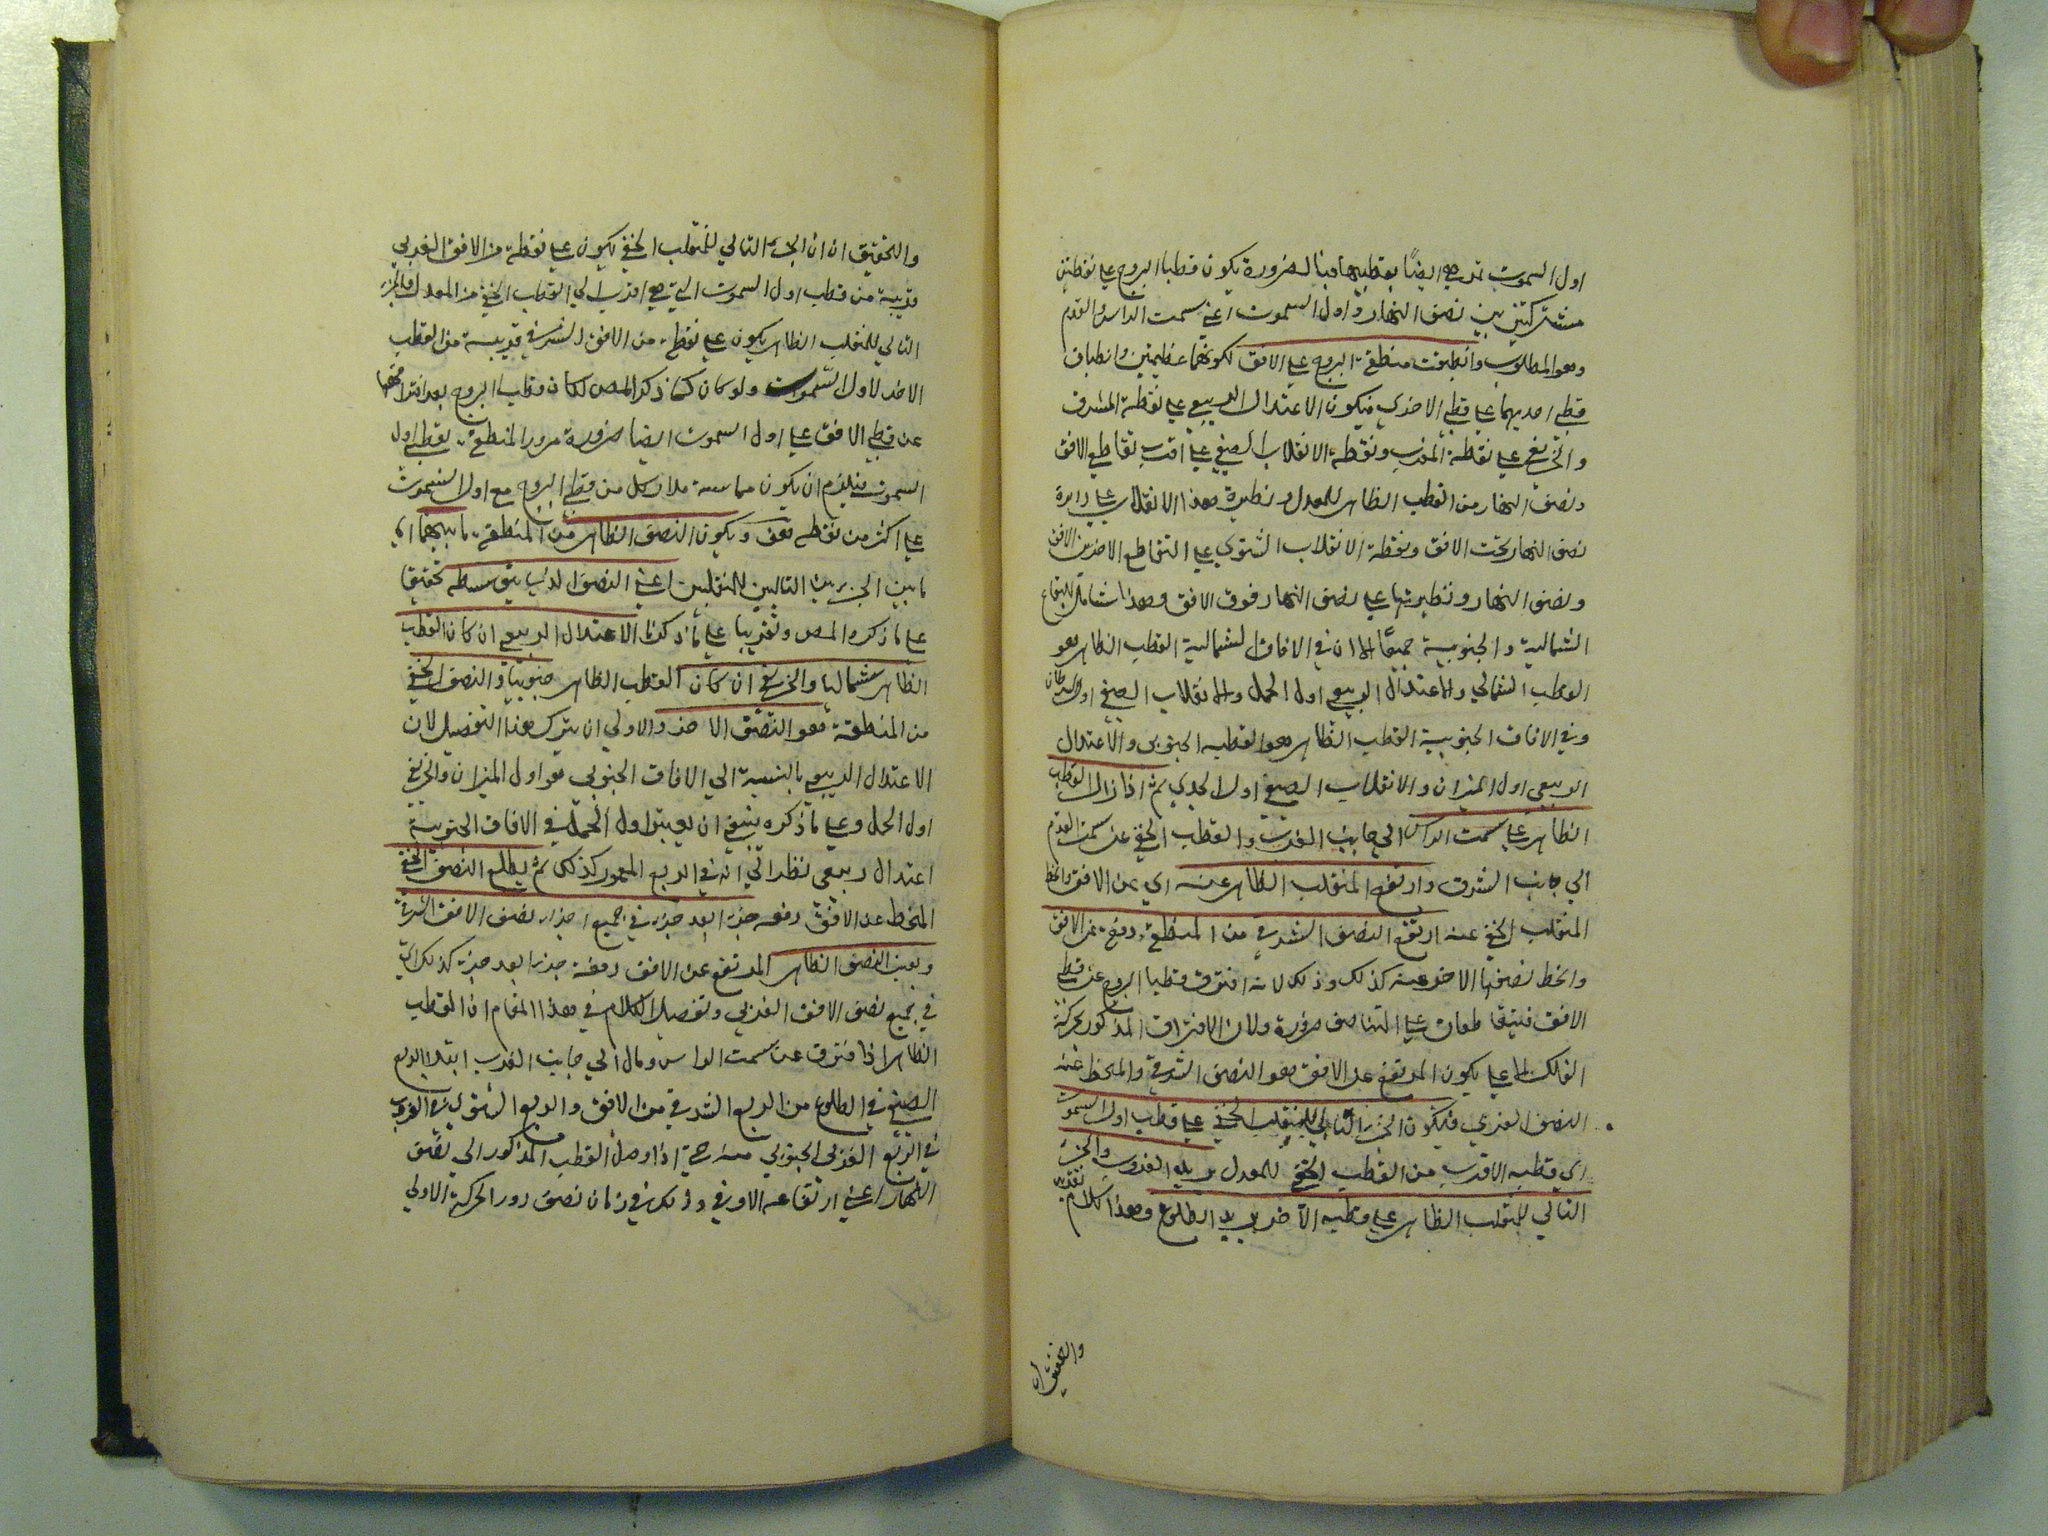 اول السموت تمر هي ايضًا بقطبيها فبالضرورة يكون قطبا البروج على نقطتين
مشتركتين بين نصف النهار واول السموت اعني سمت الراس والقدم
وهو المطلوب وانطبقت منطقة البروج على الافق لكونهما عظيمتين وانطباق
قطبي احديهما على قطبي الاخرى فيكون الاعتدال الربيعي على نقطة المشرق
والخريفي على نقطة المغرب ونقطة الانقلاب الصيفي على اقرب تقاطعي الافق
ونصف النهار من القطب الظاهر للمعدل ونظيرة هذا الانقلاب على دايرة
نصف النهار تحت الافق ونقطة الانقلاب الشتوي على التقاطع الاخر بين الافق
ونصف النهار ونظيرتها على نصف النهار فوق الافق وهذا شامل للبقاع
الشمالية والجنوبية جميعًا الا ان في الافاق الشمالية القطب الظاهر هو
القطب الشمالي والاعتدال الربيعي اول الحمل والانقلاب الصيفي اول السرطان
وفي الافاق الجنوبية القطب الظاهر هو القطب الجنوبي والاعتدال
الربيعي اول الميزان والانقلاب الصيفي اول الجدي ثم اذا زال القطب
الظاهر على سمت الراس الى جانب المغرب والقطب الخفي عن سمت القدم
الى جانب المشرق وارتفع المنقلب الظاهر عنه اي عن الافق وانحط
المنقلب الخفي عنه ارتفع النصف الشرقي من المنطقة دفعة عن الافق
وانحط نصفها الاخر عنه كذلك وذلك لانه افترق قطبا البروج عن قطبي
الافق فيتقاطعان على التناصف ضرورة ولان الافتراق المذكور بحركة
الفلك الاعلى يكون المرتفع عن الافق هو النصف الشرقي والمنحط عنه
النصف الغربي فيكون الجزء التالي للمنقلب الخفي على قطب اول السموت
اي قطبه الاقرب من القطب الخفي للمعدل يريد الغروب والجزء
التالي للمنقلب الظاهر على قطبه الاخر يريد الطلوع وهذا كلام تقريبي
والتحقيق ان
والتحقيق ان ان الجزء التالي للمنقلب الخفي يكون على نقطة من الافق الغربي
قريبة من قطب اول السموت التي هي اقرب الى القطب الخفي من المعدل والجزء
التالي للمنقلب الظاهر يكون على نقطة من الافق الشرقي قريبة من القطب
الاخر لاول السموت ولو كان كما ذكر المص لكان قطب البروج بعد افتراقهما
عن قطبي الافق على اول السموت ايضا ضرورة مرور المنطقة بقطبي اول
السموت فيلزم ان يكون مماسة مدار كل من قطبي البروج مع اول السموت
على اكثر من نقطة هف ويكون النصف الظاهر من المنطقة ما بينهما اي
ما بين الجزءين التاليين للمنقلبين اعني النصف الذي يتوسطه تحقيقا
على ما ذكره المص وتقريبا على ما ذكرنا الاعتدال الربيعي ان كان القطب
الظاهر شماليا والخريفي ان كان القطب الظاهر جنوبيا والنصف الخفي
من المنطقة هو النصف الاخر والاولى ان يترك هذا التفصيل لان
الاعتدال الربيعي بالنسبة الى الافاق الجنوبي هو اول الميزان والخريفي
اول الحمل وعلى ما ذكره ينبغي ان يعتبر اول الحمل في الافاق الجنوبية
اعتدال ربيعي نظرا الى انه في الربع المعمور كذلك ثم يطلع النصف الخفي
المنحط عن الافق دفعه جزءا بعد جزء في جميع اجزاء نصف الافق الشرقي
ويغيب النصف الظاهر المرتفع عن الافق دفعة جزءا بعد جزء كذلك اي
في جميع نصف الافق الغربي وتفصيل الكلام في هذا المقام ان القطب
الظاهر اذا افترق عن سمت الراس ومال الى جانب المغرب ابتدا الربع
الصيفي في الطلوع من الربع الشرقي من الافق والربع الشتوي في الغروب
في الربع الغربي الجنوبي منه حتى اذا وصل القطب المذكور الى نصف
النهار اعني ارتفاعه الاوفى وذلك في زمان نصف دور الحركة الاولى